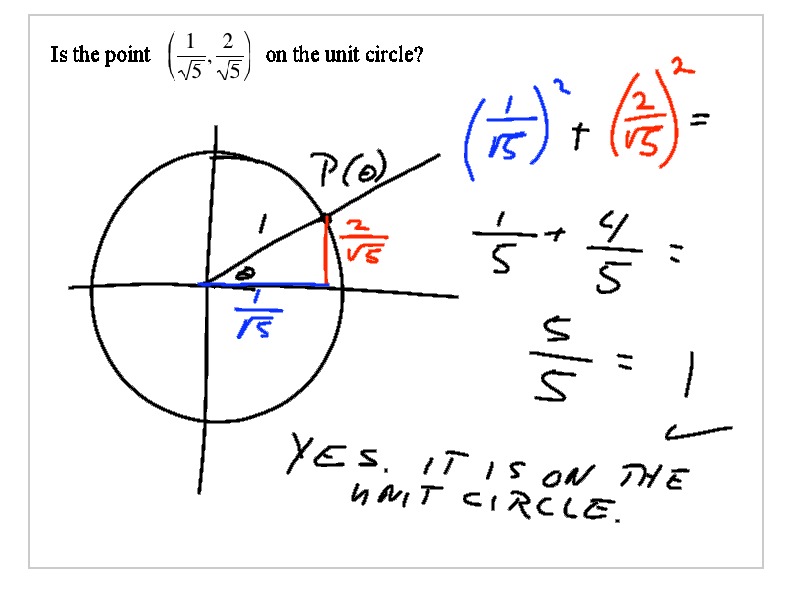 Is the point (1/√5, 2/√5) on the unit circle?
(1/√5)² + (2/√5)² =
P(θ)
1
2/√5
θ
1/√5
1/5 + 4/5 =
5/5 = 1 ✓
YES. IT IS ON THE
UNIT CIRCLE.